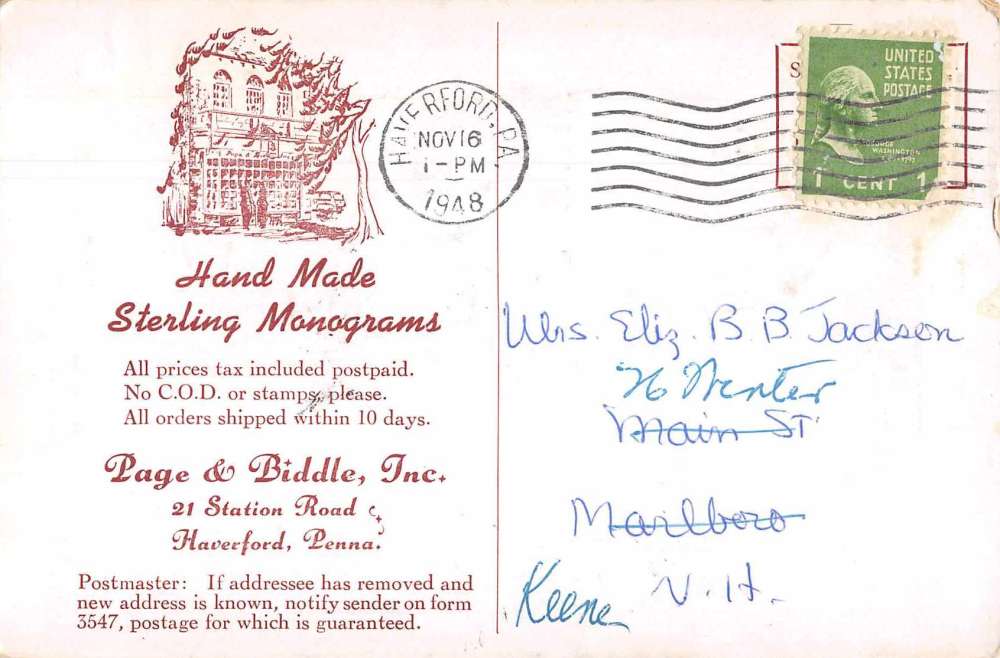 HAVERFORD, PA.
NOV 16
1-PM
1948
UNITED
STATES
POSTAGE
GEORGE
WASHINGTON
1 CENT 1
S
Hand Made
Sterling Monograms
All prices tax included postpaid.
No C.O.D. or stamps, please.
All orders shipped within 10 days.
Page & Biddle, Inc.
21 Station Road
Haverford, Penna.
Postmaster: If addressee has removed and
new address is known, notify sender on form
3547, postage for which is guaranteed.
Mrs. Eliz. B. B. Jackson
76 Winter
Main ST.
Marlboro
Keene N. H.